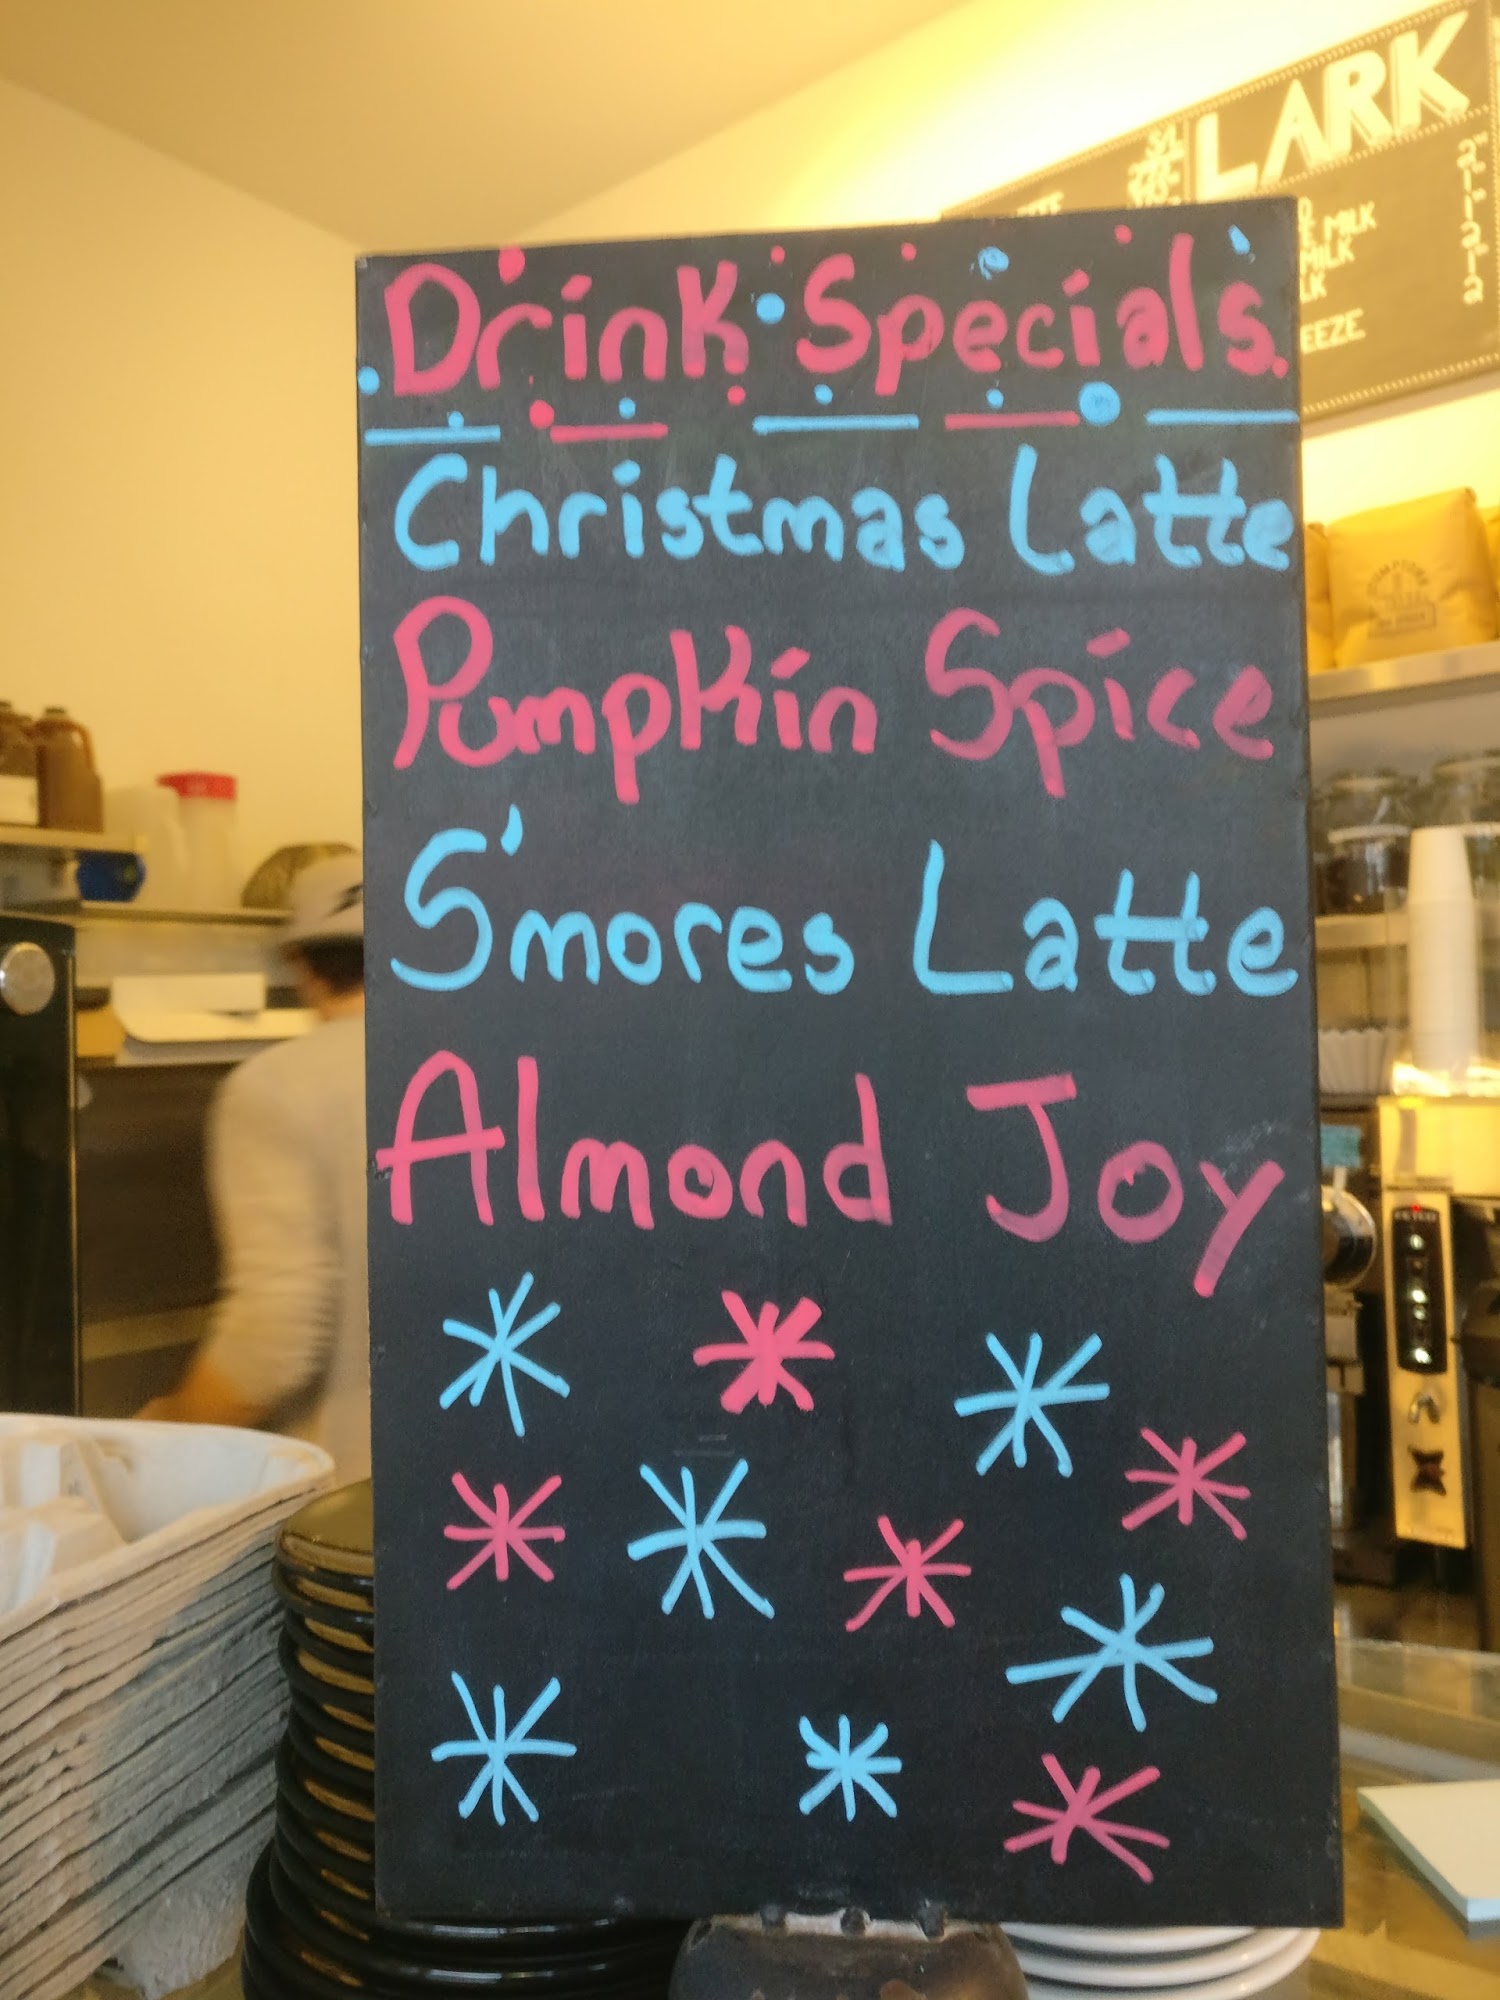 LARK
MILK
MILK
EEZE
Drink Specials
Christmas Latte
Pumpkin Spice
S'mores Latte
Almond Joy